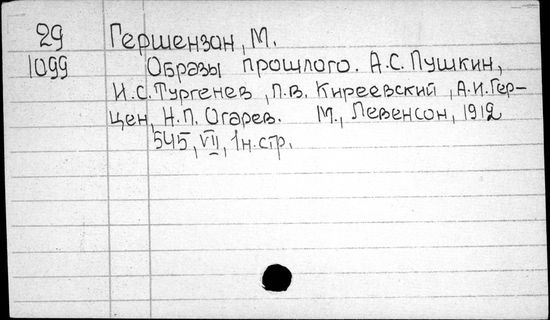 29 Гершензон, М.
1099 Образы прошлого. А.С. Пушкин,
И.С. Тургенев, П.В. Киреевский, А.И. Гер-
цен, Н.П. Огарев. М., Левенсон, 1912
545, VII, 1н.стр.